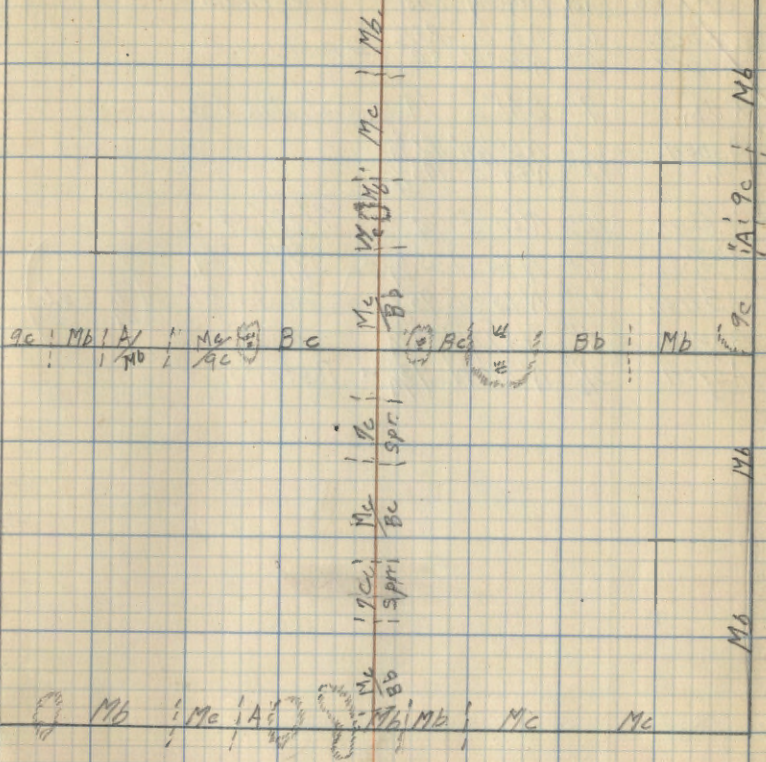 Mb
Mc
Mb
Mc
Bb
9c Mb A/Mb Mc/9c Bc Bc Bb Mb
9c
Spr.
Mc
Bc
Spr.
Mc
Bb
Mb Mc A Mb Mb Mc Mc
Mb
9c
A
9c
Mb
Mb